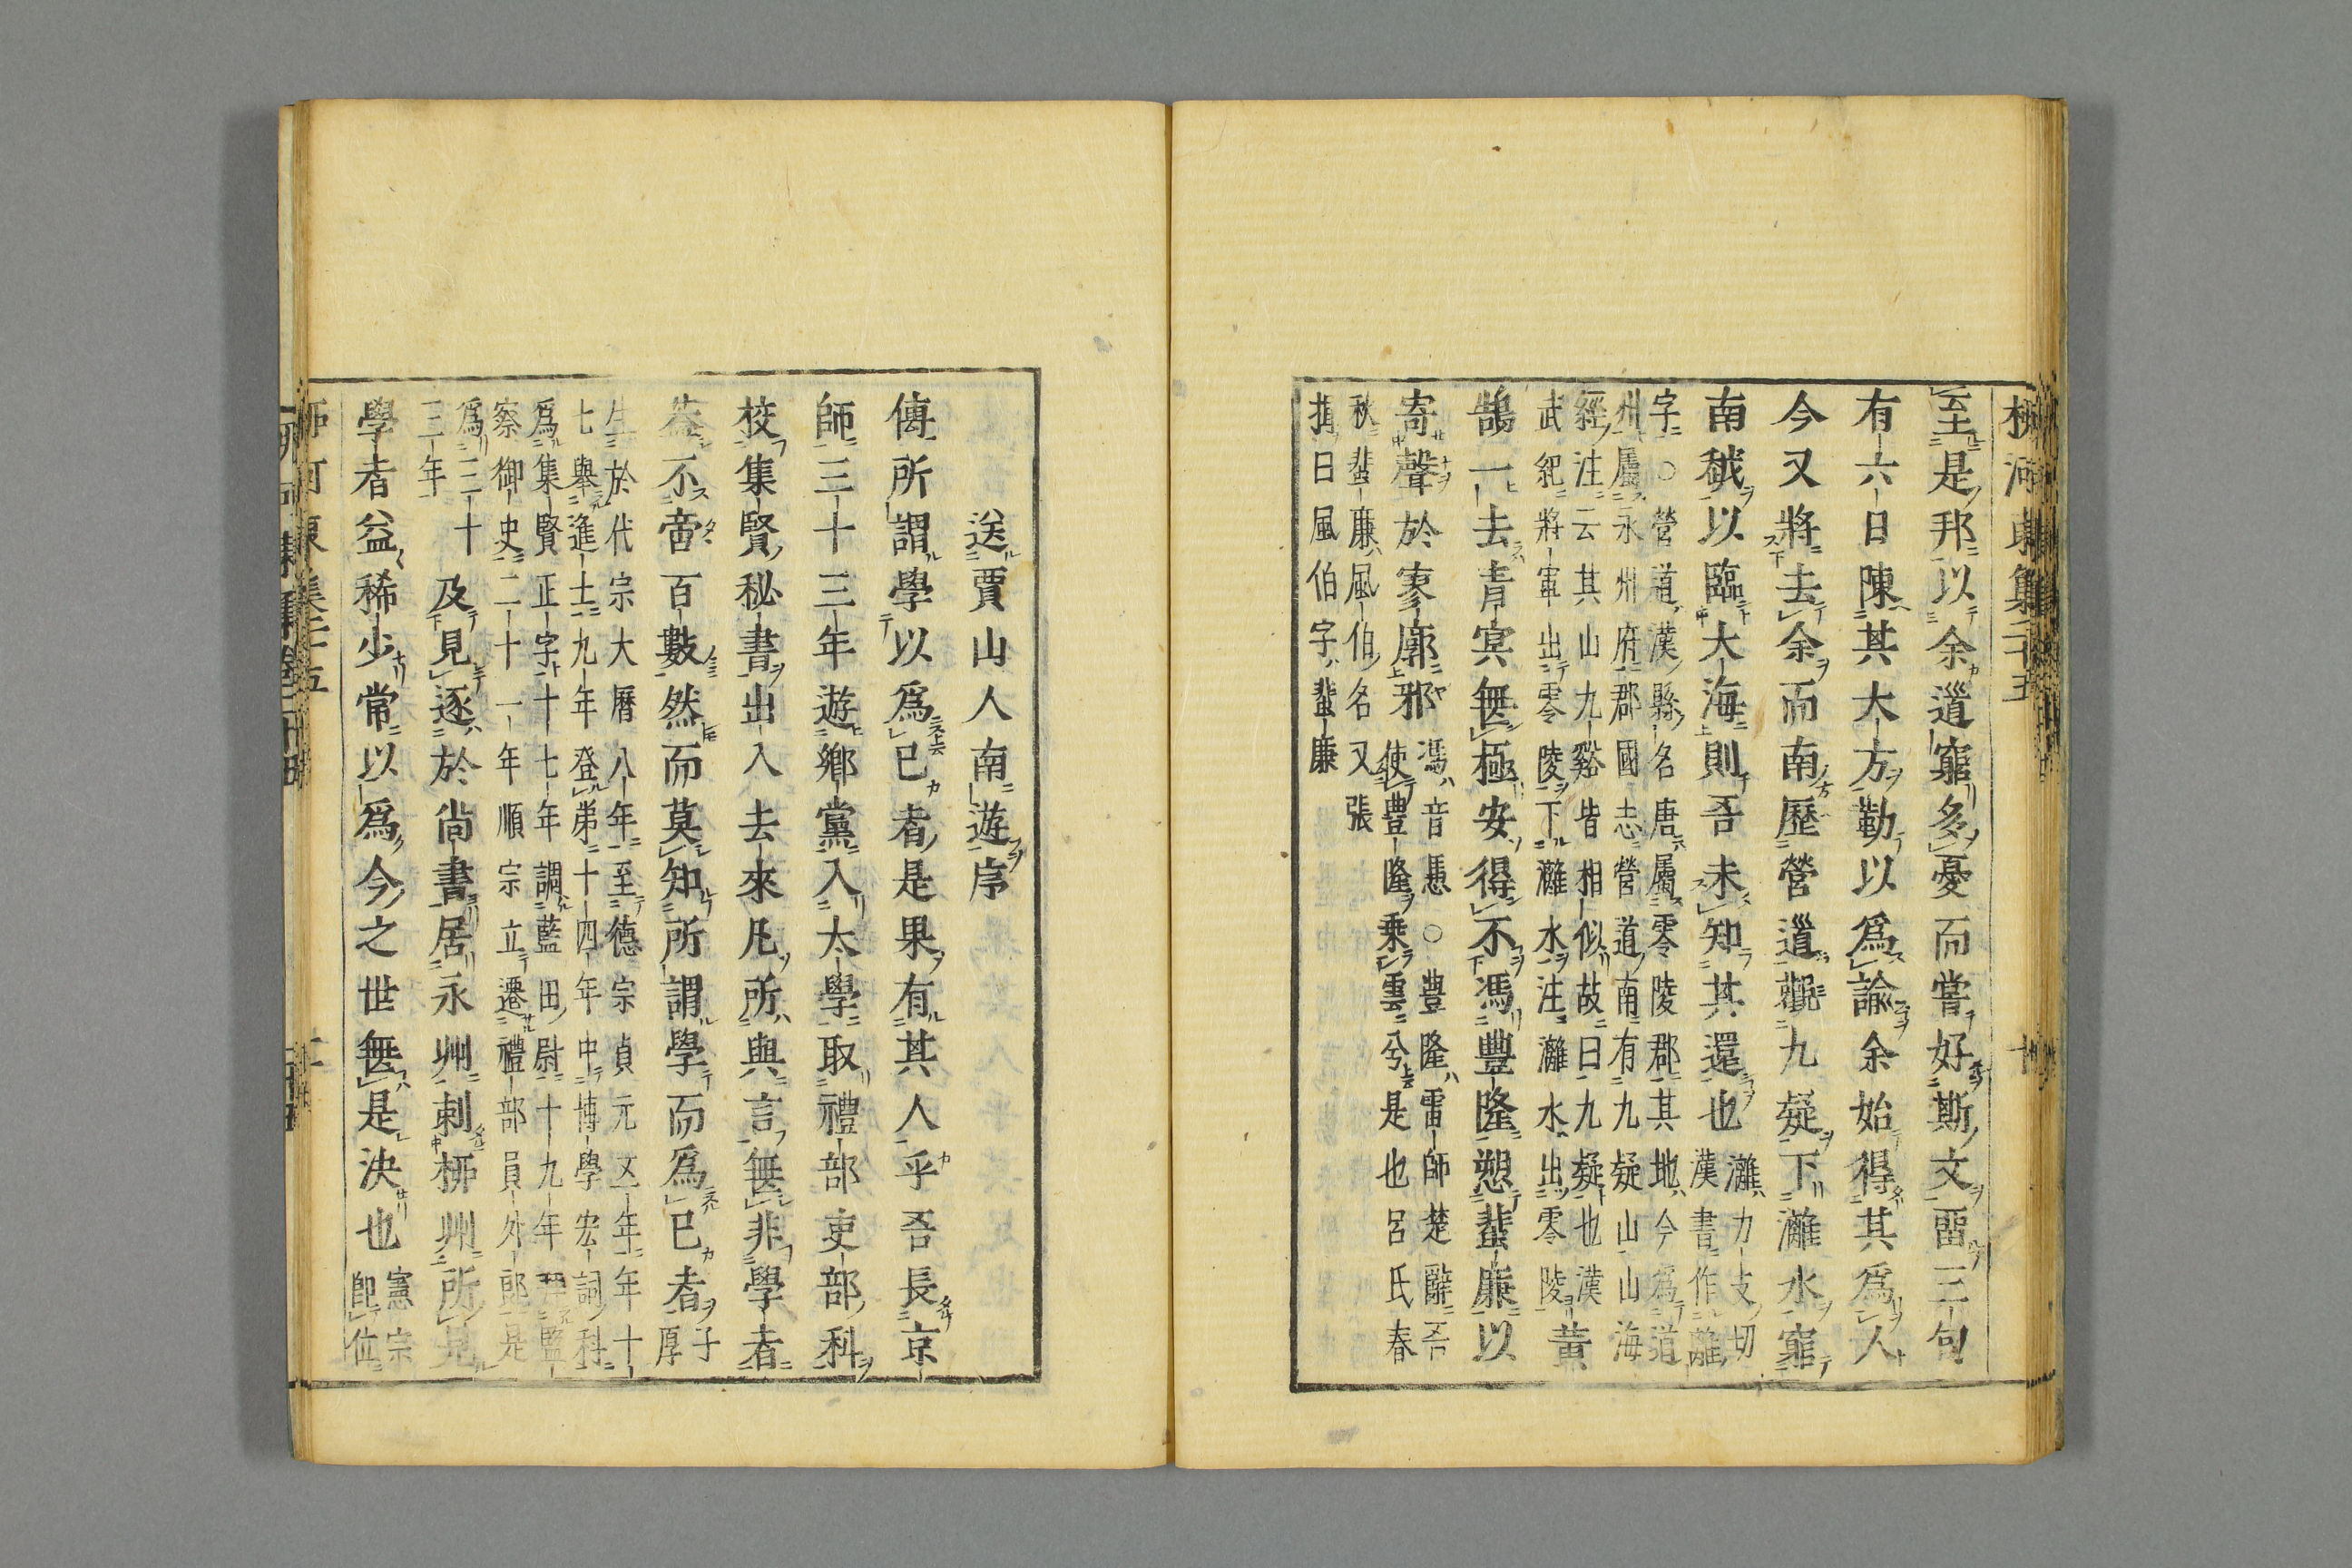 柳河東集二十五
十
至是邦以余道窮多憂而嘗好斯文畱三句
有六日陳其大方勒以爲諭余始得其爲人
今又將去余而南歷營道觀九疑下灕水窮
南越以臨大海則吾未知其還也
灕力支切
漢書作離
字○營道漢縣名唐屬零陵郡其地今爲道
州屬永州府郡國志營道南有九疑山山海
經注云其山九谿皆相似故曰九疑也漢
武紀將軍出零陵下灕水注灕水出零陵
黃
鵠一去青冥無極安得不馮豐隆愬蜚廉以
寄聲於寥廓邪
馮音憑○豐隆雷師楚辭吾
使豐隆乘雲兮是也呂氏春
秋蜚廉風伯名又張
揖曰風伯字蜚廉
送賈山人南遊序
傳所謂學以爲己者是果有其人乎吾長京
師三十三年遊鄉黨入太學取禮部吏部科
校集賢秘書出入去來凡所與言無非學者
蓋不啻百數然而莫知所謂學而爲己者
子
厚
生於代宗大曆八年至德宗貞元五年年十
七舉進士九年登第十四年中博學宏詞科
爲集賢正字十七年調藍田尉十九年拜監
察御史二十一年順宗立遷禮部員外郎是
爲三十
三年
及見逐於尚書居永州刺柳州所見
學者益稀少常以爲今之世無是決也
憲宗
卽位
柳河東集二十五